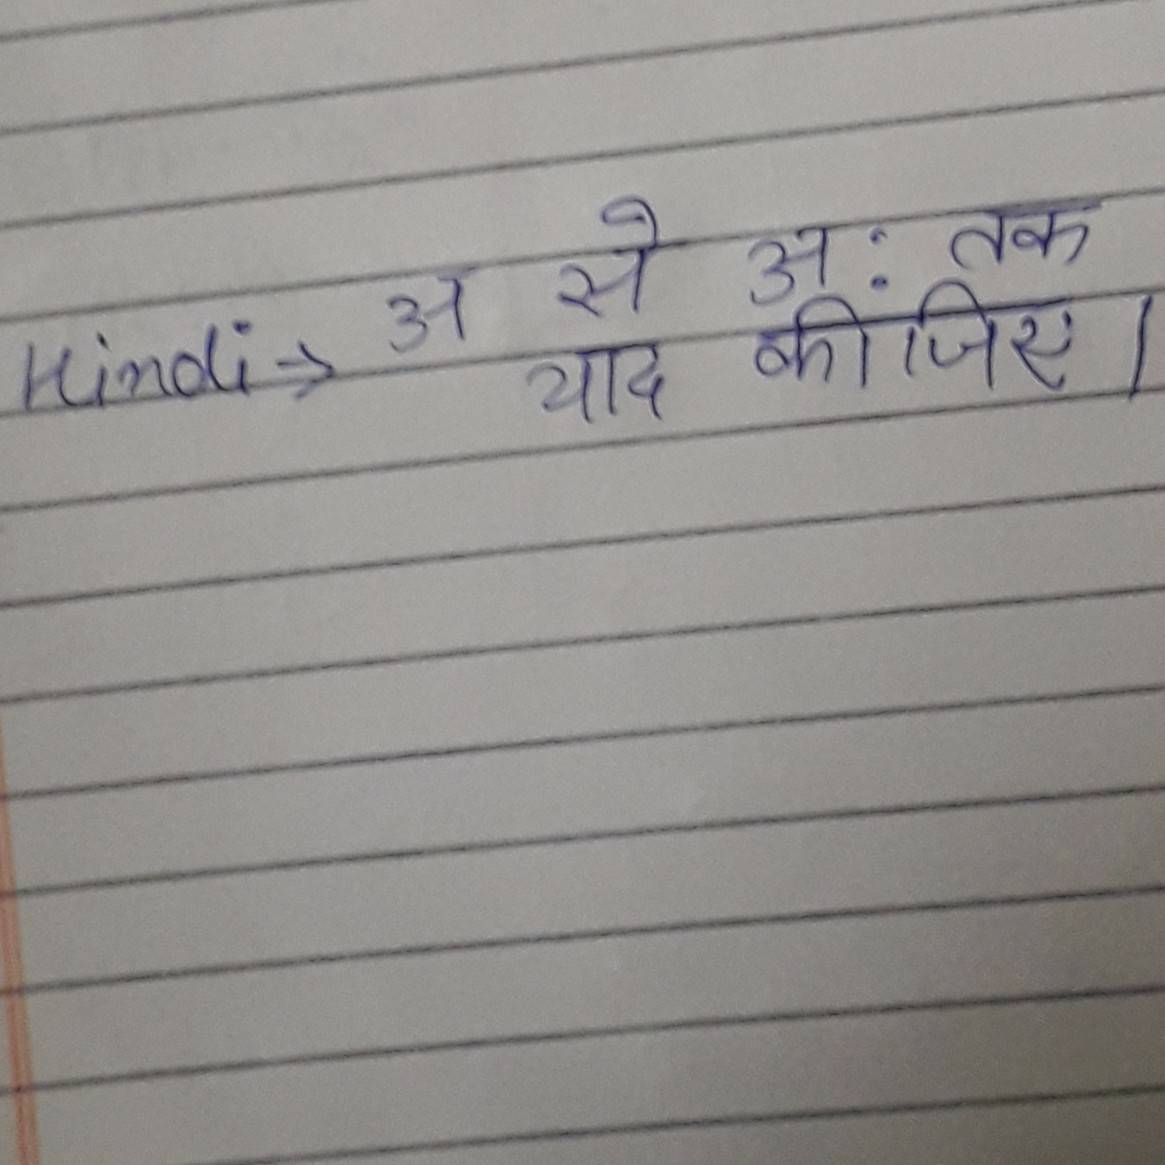 Hindi → अ से अ: तक
याद कीजिए।